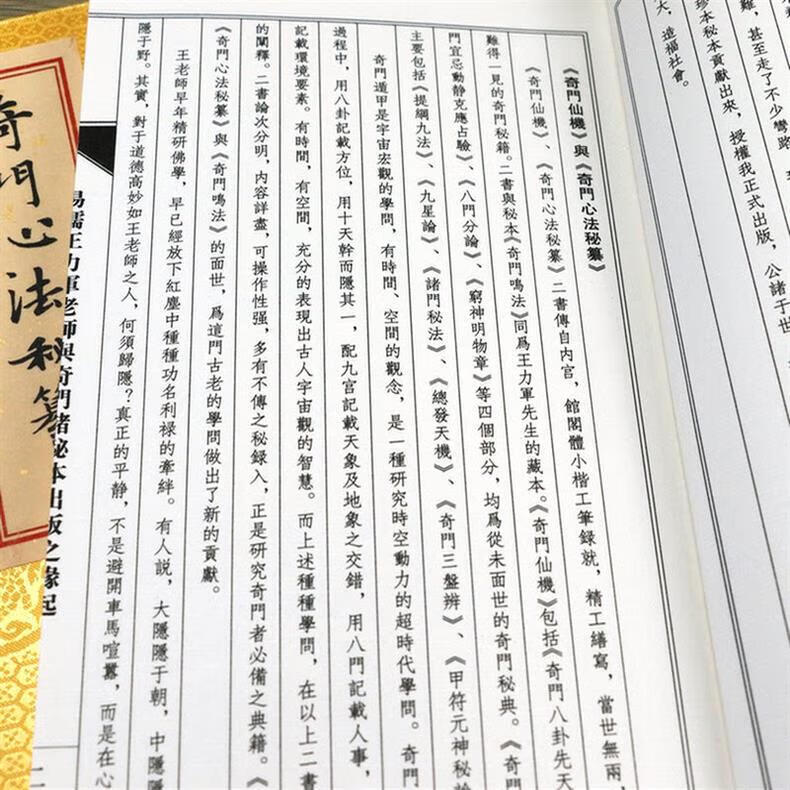 難，甚至走了不少彎路
珍本秘本貢獻出來，授權我正式出版，公諸于世
大，造福社會。
《奇門仙機》與《奇門心法秘纂》
《奇門仙機》、《奇門心法秘纂》二書傳自内宫，館閣體小楷工筆録就，精工繕寫，當世無兩，
難得一見的奇門秘籍。二書與秘本《奇門鳴法》同爲王力軍先生的藏本。《奇門仙機》包括《奇門八卦先天
門宜忌動静克應占驗》、《八門分論》、《窮神明物章》等四個部分，均爲從未面世的奇門秘典。《奇門
主要包括《提綱九法》、《九星論》、《諸門秘法》、《總發天機》、《奇門三盤辨》、《甲符元神秘論
奇門遁甲是宇宙宏觀的學問，有時間、空間的觀念，是一種研究時空動力的超時代學問。奇門
過程中，用八卦記載方位，用十天幹而隱其一，配九宫記載天象及地象之交錯，用八門記載人事，
記載環境要素。有時間，有空間，充分的表現出古人宇宙觀的智慧。而上述種種學問，在以上二書
的闡釋。二書論次分明，内容詳盡，可操作性强，多有不傳之秘録入，正是研究奇門者必備之典籍。《
《奇門心法秘纂》與《奇門鳴法》的面世，爲這門古老的學問做出了新的貢獻。
王老師早年精研佛學，早已經放下紅塵中種種功名利禄的牽絆。有人説，大隱隱于朝，中隱隱
隱于野。其實，對于道德高妙如王老師之人，何須歸隱？真正的平静，不是避開車馬喧囂，而是在心
易儒王力軍老師與奇門諸秘本出版之緣起
二
奇門心法秘纂